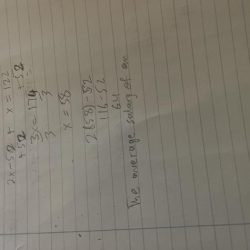 2x-52 + x = 122
+52 +52
3x = 174
3 3
x = 58
2(58)-52
116-52
64
The average salary of an